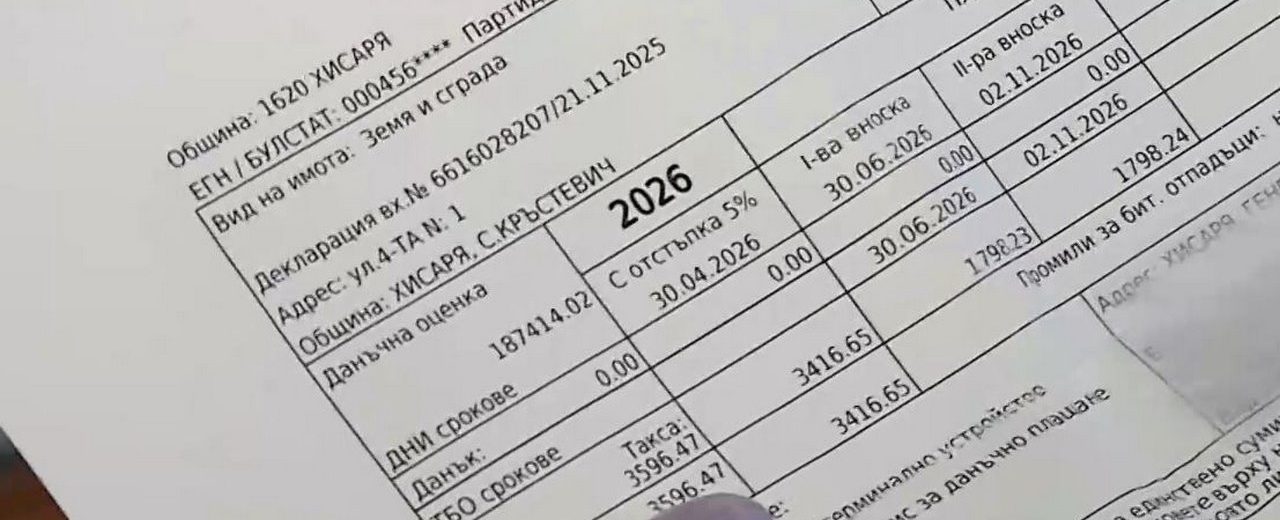 Община: 1620 ХИСАРЯ
ЕГН / БУЛСТАТ: 000456****
Вид на имота: Земя и сграда
Декларация вх.№ 6616028207/21.11.2025
Адрес: ул.4-ТА N: 1
Община: ХИСАРЯ, С.КРЪСТЕВИЧ
Данъчна оценка
187414.02
2026
С отстъпка 5%
I-ва вноска
II-ра вноска
ДНИ срокове
30.04.2026
30.06.2026
02.11.2026
Данък: 0.00
0.00
0.00
0.00
ТБО срокове
30.06.2026
02.11.2026
Такса:
3596.47
3416.65
1798.23
1798.24
3596.47
3416.65
Промили за бит. отпадъци:
Адрес: ХИСАРЯ,
за данъчно плащане
единствено
върху